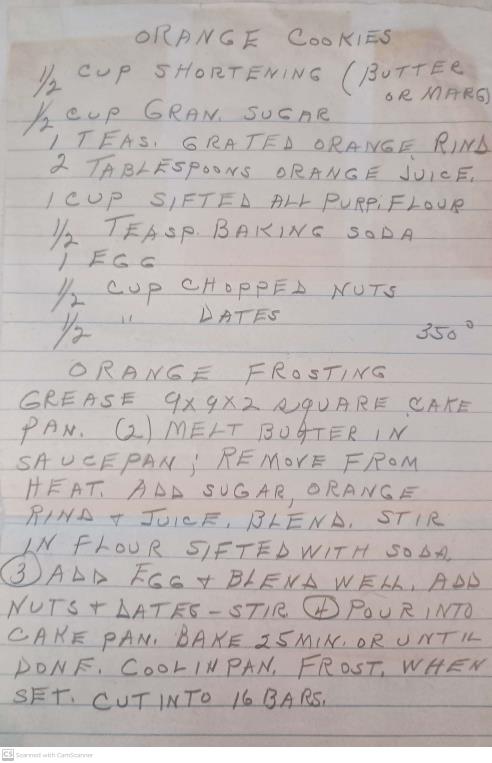 ORANGE COOKIES
1/2 CUP SHORTENING (BUTTER
OR MARG)
1/2 CUP GRAN. SUGAR
1 TEAS. GRATED ORANGE RIND
2 TABLESPOONS ORANGE JUICE.
1 CUP SIFTED ALL PURP. FLOUR
1/2 TEASP. BAKING SODA
1 EGG
1/2 CUP CHOPPED NUTS
1/2 " DATES 350°
ORANGE FROSTING
GREASE 9X9X2 SQUARE CAKE
PAN. (2) MELT BUTTER IN
SAUCEPAN; REMOVE FROM
HEAT. ADD SUGAR, ORANGE
RIND + JUICE. BLEND. STIR
IN FLOUR SIFTED WITH SODA.
(3) ADD EGG + BLEND WELL. ADD
NUTS + DATES - STIR (4) POUR INTO
CAKE PAN. BAKE 25 MIN. OR UNTIL
DONE. COOL IN PAN. FROST. WHEN
SET. CUT INTO 16 BARS.
CS Scanned with CamScanner